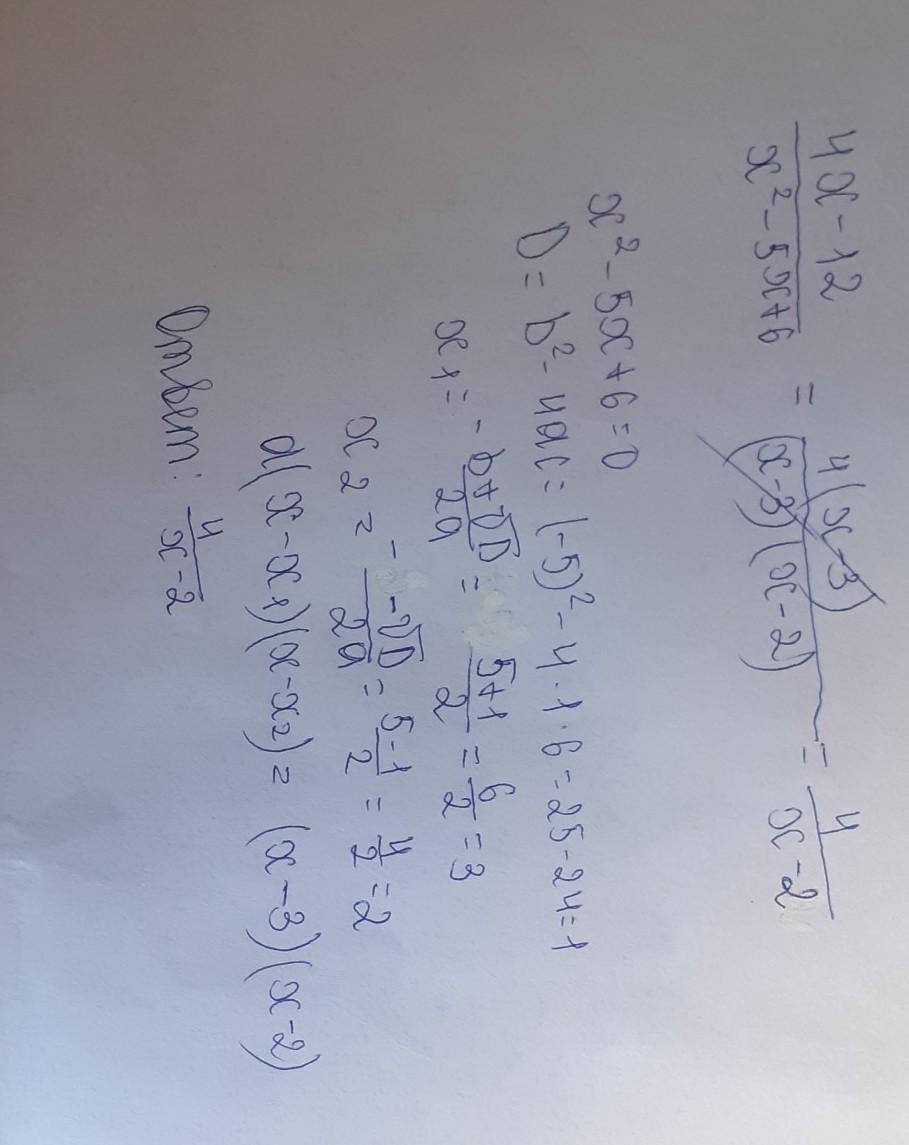 (4x-12)/(x²-5x+6) = 4(x-3)/((x-3)(x-2)) = 4/(x-2)
x²-5x+6=0
D= b²-4ac= (-5)²-4·1·6=25-24=1
x1= (-b+√D)/2a = (5+1)/2 = 6/2 =3
x2= (- -√D)/2a = (5-1)/2 = 4/2 =2
a(x-x1)(x-x2)= (x-3)(x-2)
Ответ: 4/(x-2)